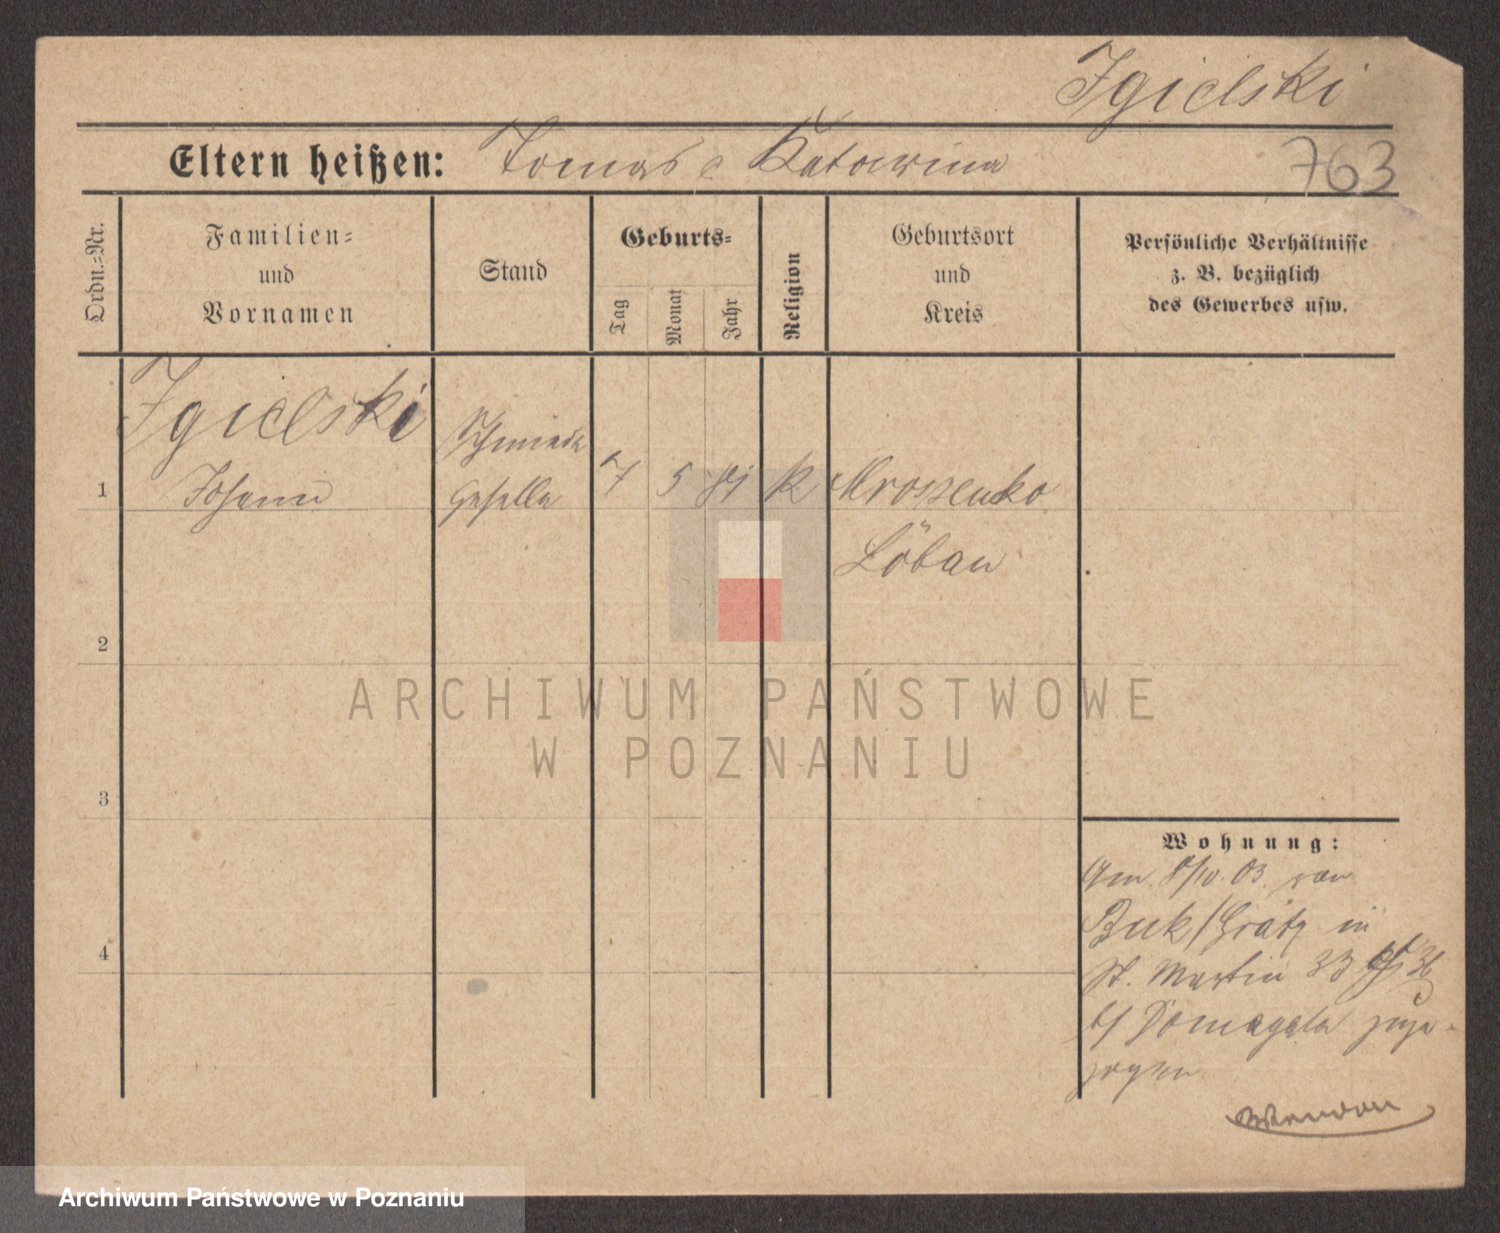 Igielski
Eltern heißen: Tomas e Katarina
763
Ordn.-Nr.
Familien-
und
Vornamen
Stand
Geburts-
Tag
Monat
Jahr
Religion
Geburtsort
und
Kreis
Persönliche Verhältnisse
z. B. bezüglich
des Gewerbes usw.
Igielski
Schmiede
1 Johann Geselle 7 5 81 K Mroszenko
Löbau
2
ARCHIWUM PAŃSTWOWE
W POZNANIU
3
Wohnung:
Am 8/10. 03 von
Buk/Grätz in
4
St. Martin 33
b/ Domagala zuge-
zogen
Archiwum Państwowe w Poznaniu